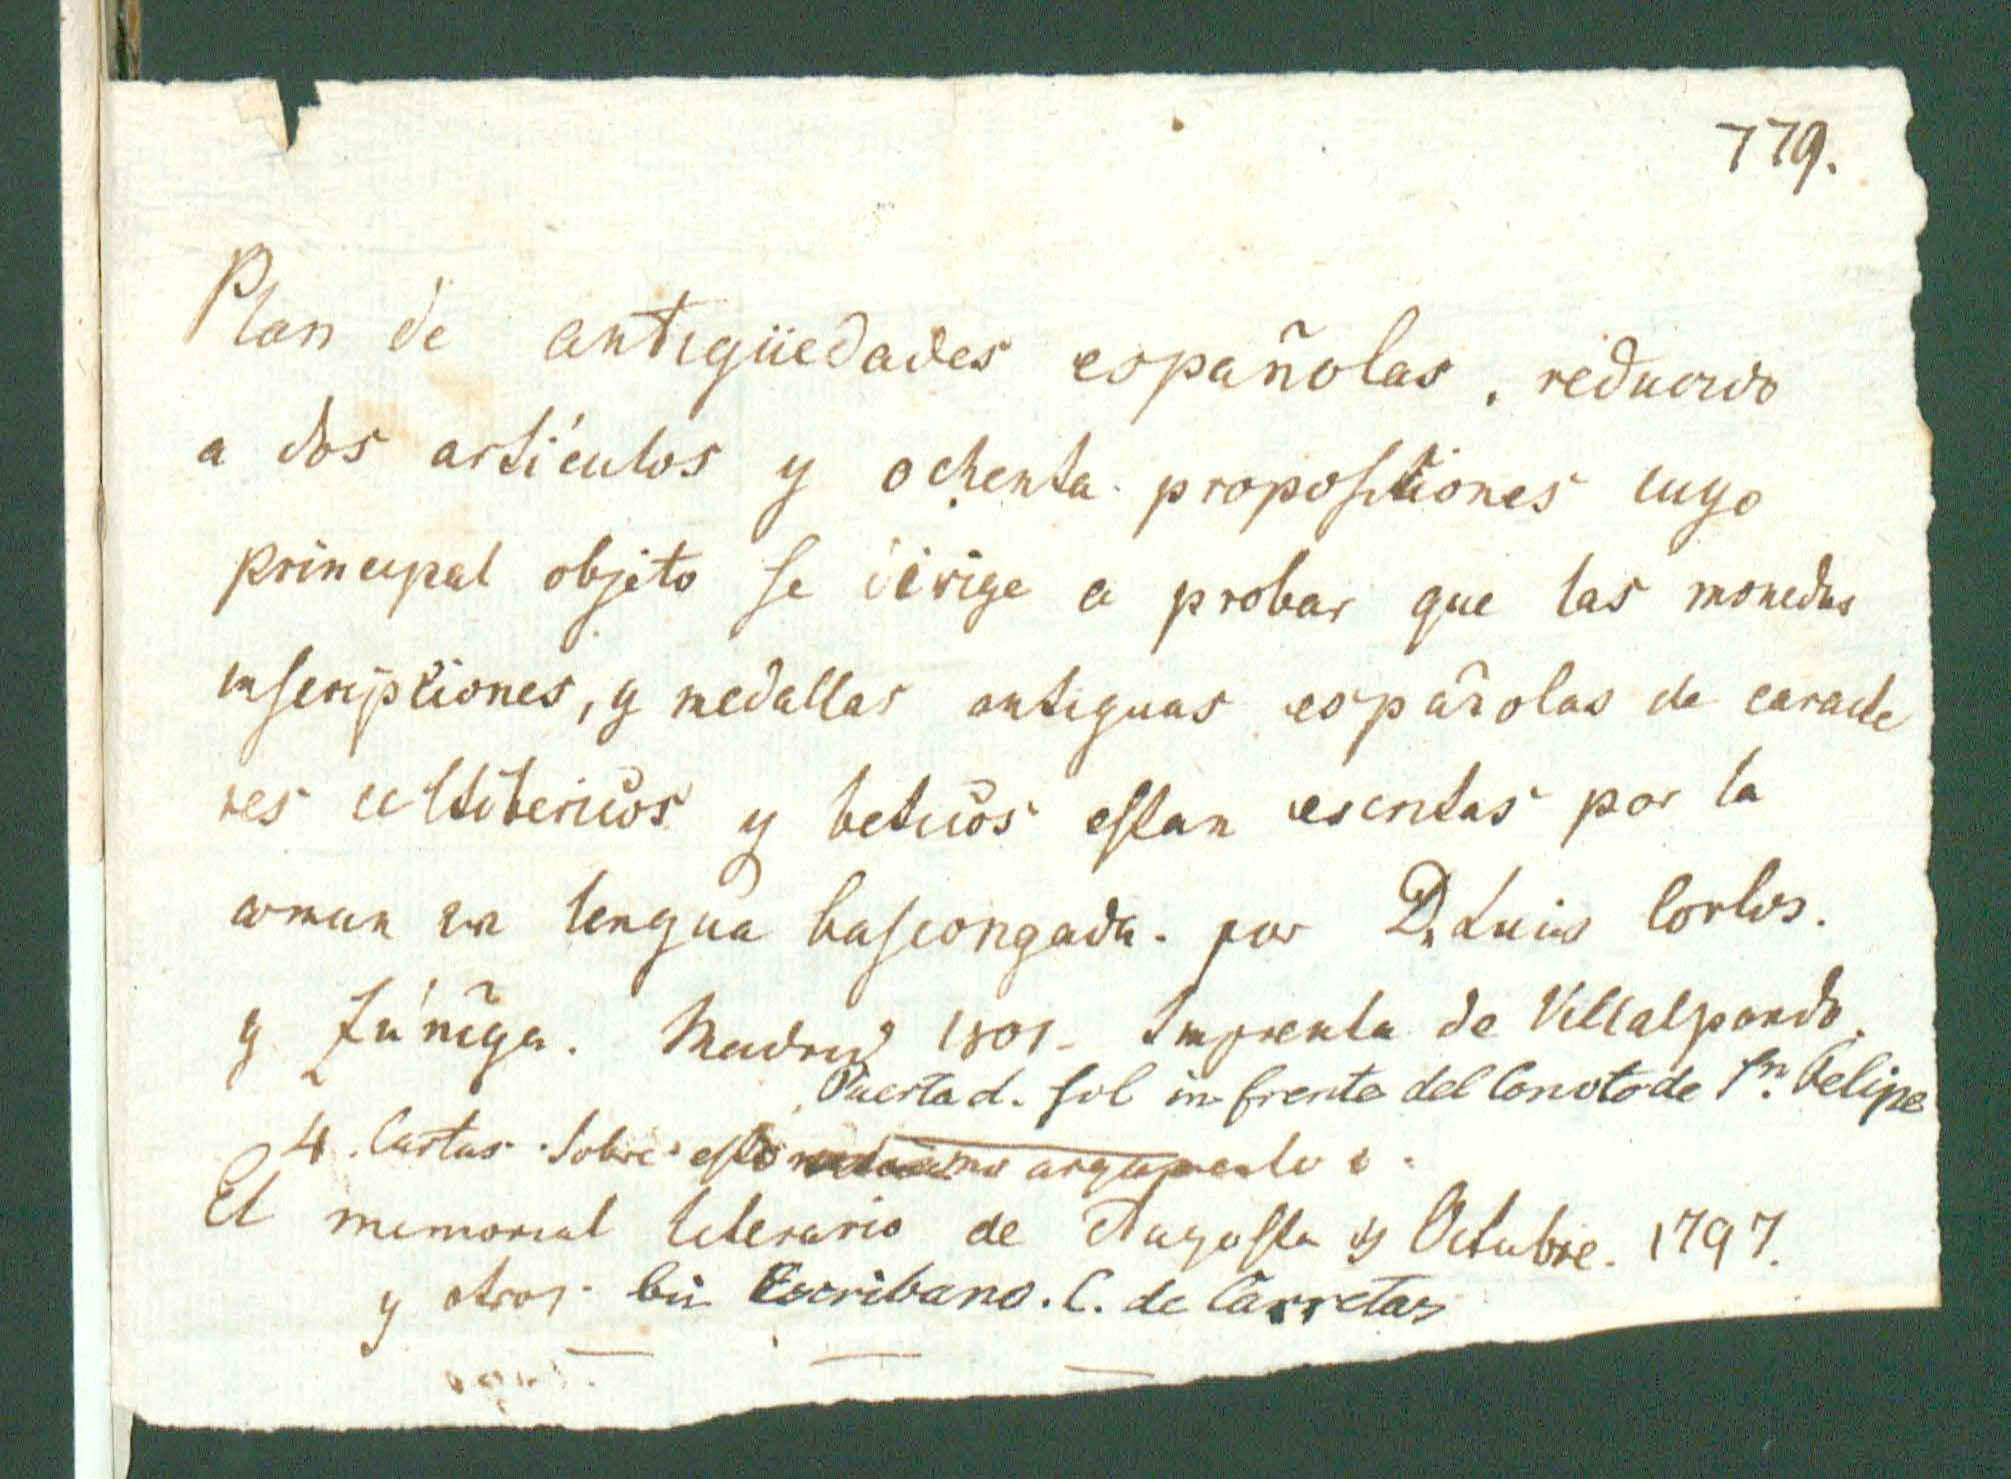 779.
Plan de antigüedades españolas. reducido
a dos artículos y ochenta propositiones cuyo
principal objeto se dirige a probar que las monedas
inscriptiones, y medallas antiguas españolas de caracte
res celtibericos y beticos estan escritas por la
comun en lengua bascongada. por Dn Luis Carlos.
y Zúñiga. Madrid 1801. Imprenta de Villalpando.
Puerta d. Sol in frente del Convto de Sn. Felipe
4. Cartas sobre esto argumento
El memorial literario de Augosto y Octubre. 1797.
y otros. bei Escribano. C. de Carretas